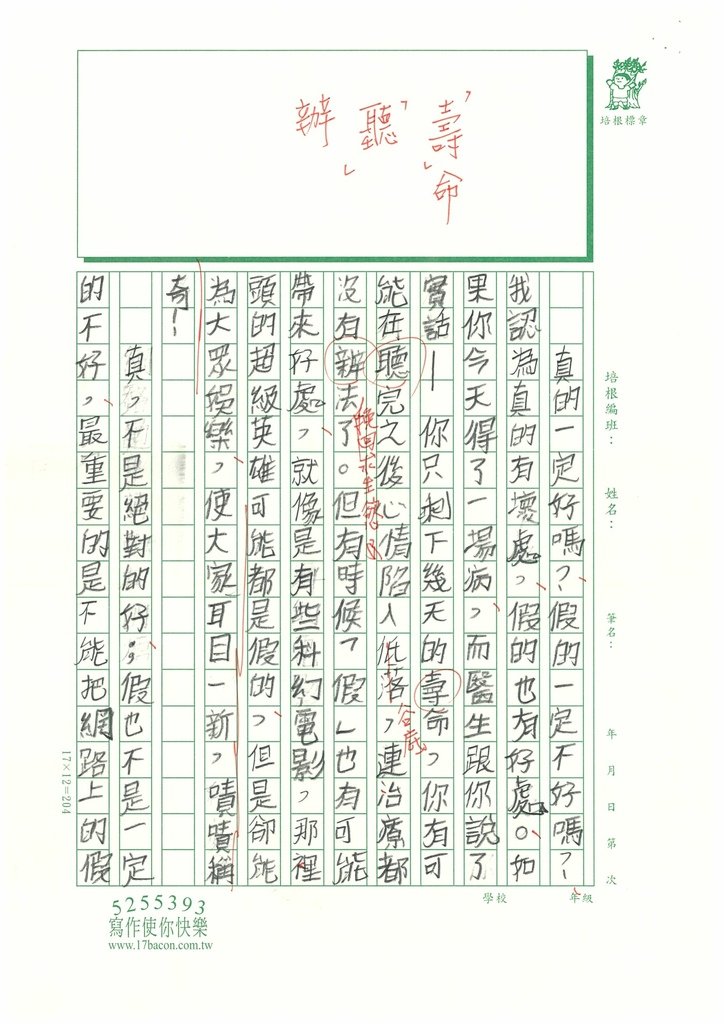 壽命
聽
辦
培根標章
培根編班：　姓名：　筆名：　年　月　日　第　次
學校　年級
真的一定好嗎？假的一定不好嗎？
我認為真的有壞處，假的也有好處。如
果你今天得了一場病，而醫生跟你說了
實話—你只剩下幾天的壽命，你有可
能在聽完之後心情陷入低落，連治療都
谷底
沒有辦法了。但有時候「假」也有可能
挽回求生
帶來好處，就像是有些科幻電影，那裡
頭的超級英雄可能都是假的，但是卻能
為大眾娛樂，使大家耳目一新，嘖嘖稱
奇！
真，不是絕對的好；假也不是一定
的不好，最重要的是不能把網路上的假
17×12=204
5255393
寫作使你快樂
www.17bacon.com.tw